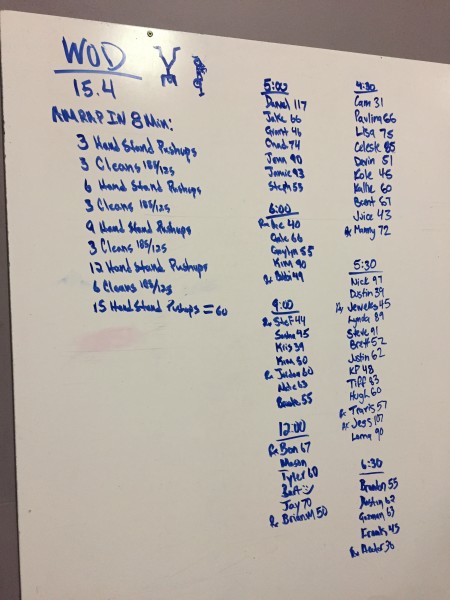 WOD
15.4
AMRAP IN 8 Min:
3 Hand Stand Pushups
3 Cleans 185/125
6 Hand Stand Pushups
3 Cleans 185/125
9 Hand Stand Pushups
3 Cleans 185/125
12 Hand Stand Pushups
6 Cleans 185/125
15 Hand Stand Pushups = 60
5:00
117
Jake 66
Grant 46
Chad 74
Jenn 90
Jamie 93
Steph 53
6:00
40
66
55
Kim 90
Rx Bobbi 49
9:00
Rx Stef 44
45
Kris 39
Kim 50
Rx Jordan 60
63
55
12:00
Rx Ben 67
Mason
Tyler 60
Bart
Jay 70
Rx Brian M 50
4:30
Cam 31
Paulina 66
Lisa 75
Celeste 85
Devin 51
Kole 45
Kallie 60
Brent 67
Juice 43
Rx Manny 72
5:30
Nick 97
Dustin 39
Jewels 45
Lynda 89
Steve 91
Brett 52
Justin 62
KP 48
Tiff 83
Hugh 60
Rx Travis 57
Rx Jess 107
Lorna 90
6:30
Brandon 55
62
Guzman 63
Frank 43
Rx 36